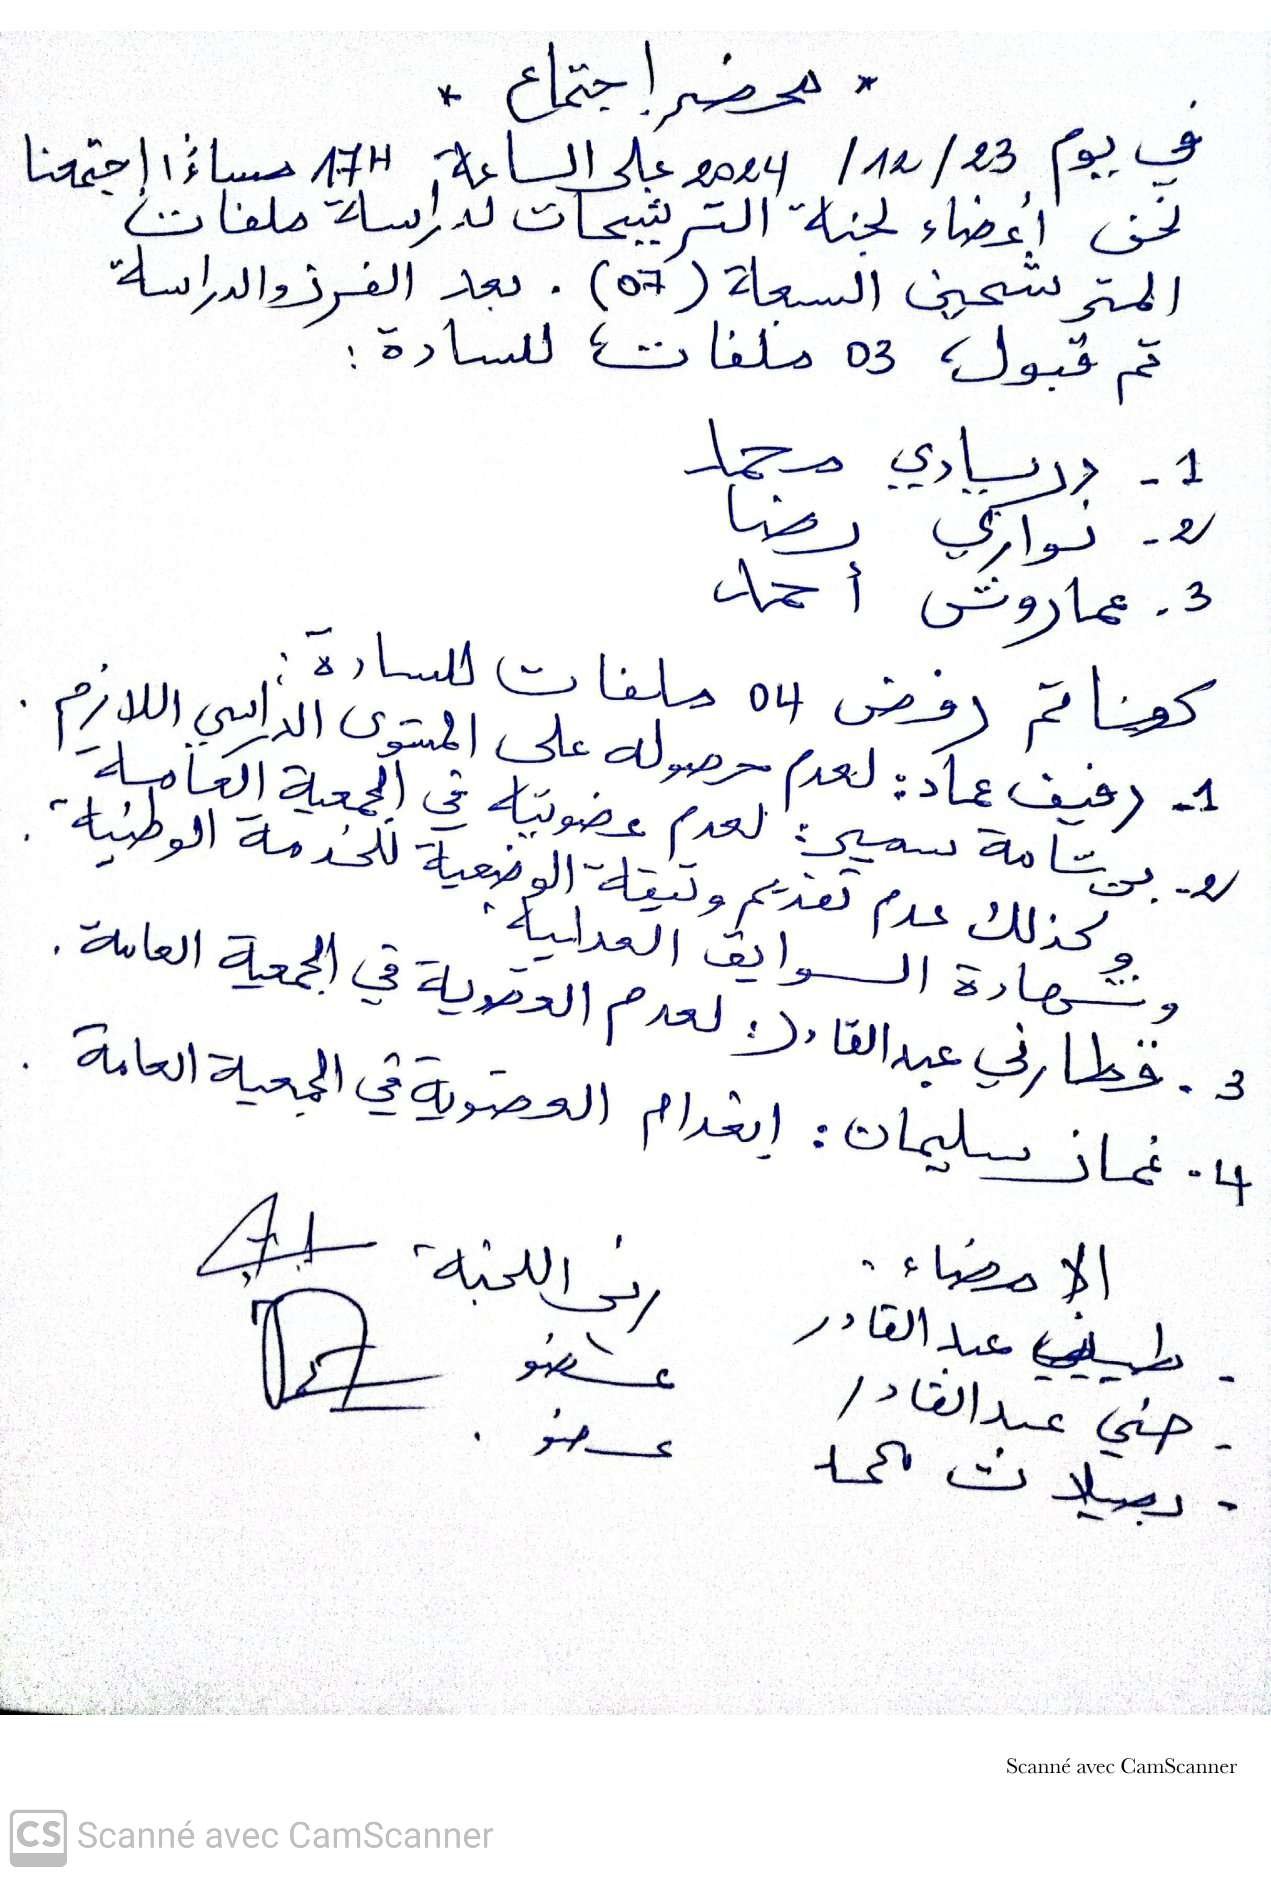 * محضر إجتماع *
في يوم 23/12/2024 على الساعة 17H مساءً إجتمعنا
نحن أعضاء لجنة الترشيحات لدراسة ملفات
المترشحين السبعة (07). بعد الفرز والدراسة
تم قبول 03 ملفات للسادة:
1- دريسادي محمد
2- نواري رضا
3. عماروش أحمد
كما تم رفض 04 ملفات للسادة:
1- رفيف عماد: لعدم حصوله على المستوى الدراسي اللازم.
2- سمير: لعدم عضويته في الجمعية العامة
وكذلك عدم تقديم وثيقة الوضعية للخدمة الوطنية.
وشهادة السوابق العدلية
3. قطارني عبد القادر: لعدم العضوية في الجمعية العامة.
4. غماز سليمان: إنعدام العضوية في الجمعية العامة.
الإمضاء:
- عبد القادر اللجنة
- حني عبد القادر عضو
- محمد عضو.
Scanné avec CamScanner
CS Scanné avec CamScanner